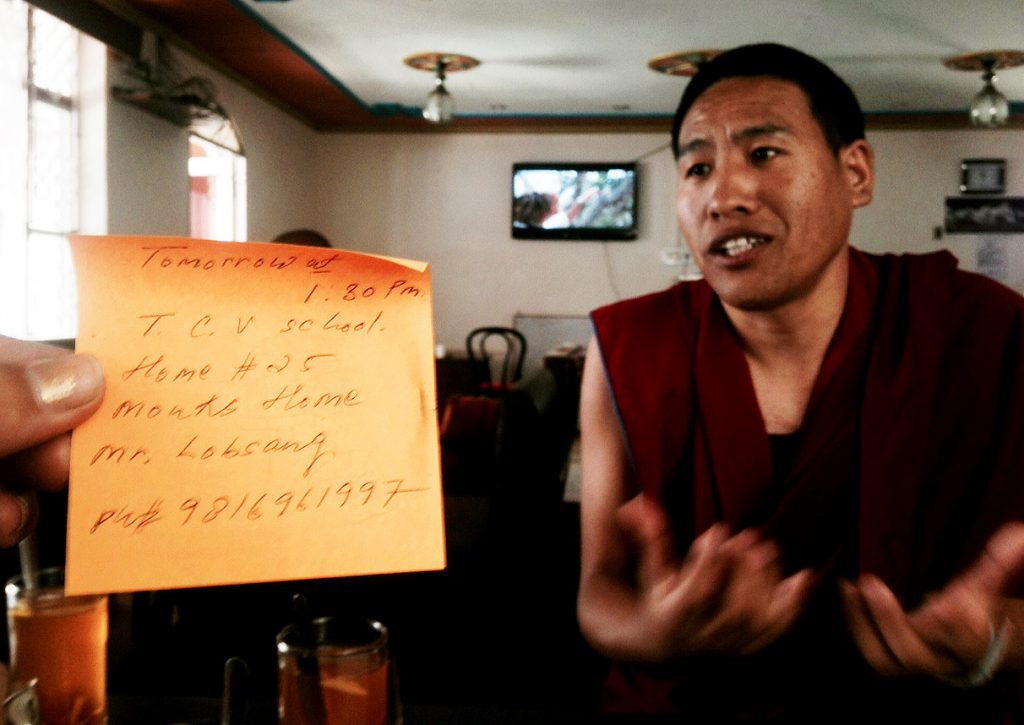 Tomorrow at
1:30 Pm.
T. C. V school.
Home # 25
Monks Home
Mr. Lobsang
PH# 9816961997